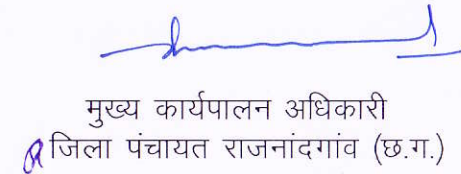 मुख्य कार्यपालन अधिकारी
जिला पंचायत राजनांदगांव (छ.ग.)